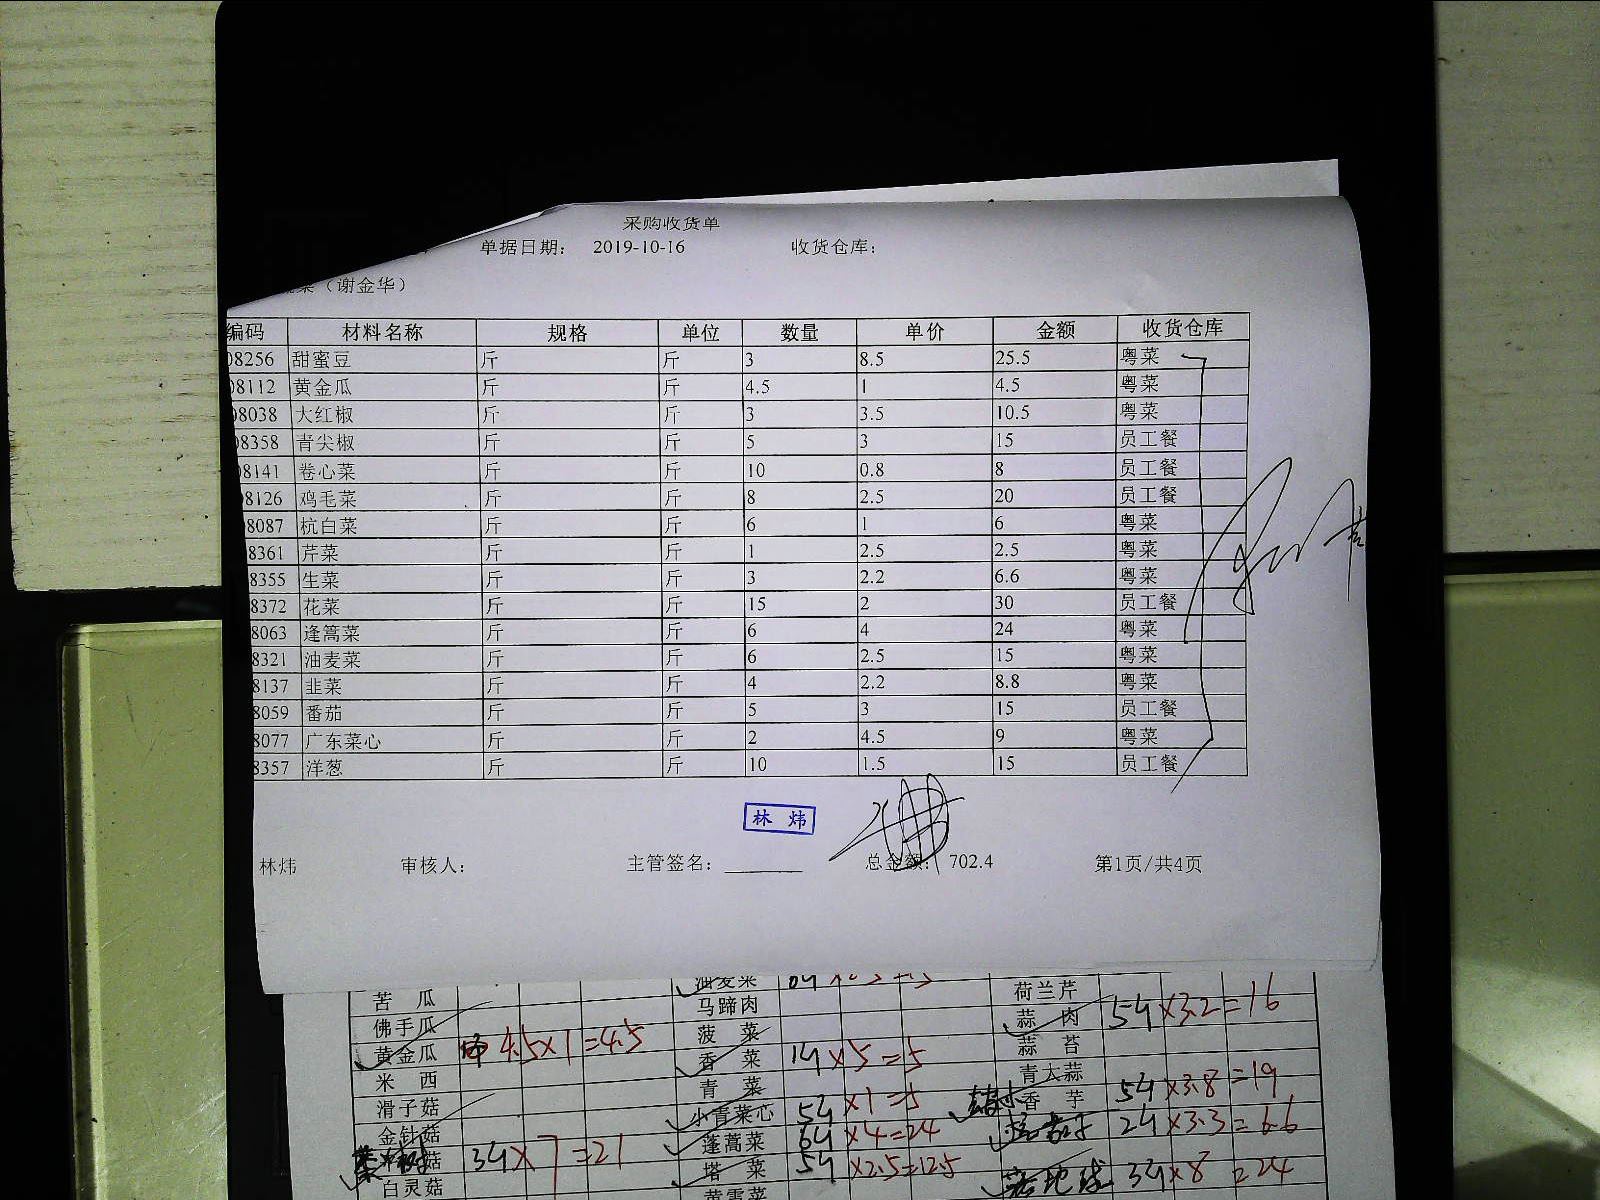 采购收货单
单据日期： 2019-10-16 收货仓库：
菜（谢金华）
编码 材料名称 规格 单位 数量 单价 金额 收货仓库
08256 甜蜜豆 斤 斤 3 8.5 25.5 粤菜
08112 黄金瓜 斤 斤 4.5 1 4.5 粤菜
08038 大红椒 斤 斤 3 3.5 10.5 粤菜
08358 青尖椒 斤 斤 5 3 15 员工餐
08141 卷心菜 斤 斤 10 0.8 8 员工餐
08126 鸡毛菜 斤 斤 8 2.5 20 员工餐
8087 杭白菜 斤 斤 6 1 6 粤菜
8361 芹菜 斤 斤 1 2.5 2.5 粤菜
8355 生菜 斤 斤 3 2.2 6.6 粤菜
8372 花菜 斤 斤 15 2 30 员工餐
8063 逢篙菜 斤 斤 6 4 24 粤菜
8321 油麦菜 斤 斤 6 2.5 15 粤菜
8137 韭菜 斤 斤 4 2.2 8.8 粤菜
8059 番茄 斤 斤 5 3 15 员工餐
8077 广东菜心 斤 斤 2 4.5 9 粤菜
8357 洋葱 斤 斤 10 1.5 15 员工餐
林 炜
林炜 审核人： 主管签名： 总金额： 702.4 第1页/共4页
油麦菜
苦 瓜 马蹄肉 荷兰芹
佛手瓜 菠 菜 蒜 肉 5斤×3.2=16
黄金瓜 4.5×1=4.5 香 菜 1斤×5=5 蒜 苔
米 西 青 菜 青大蒜
滑子菇 小青菜心 5斤×1=5 香 芋 5斤×3.8=19
金针菇 蓬蒿菜 6斤×4=24 2斤×3.3=6.6
菇 3斤×7=21 塔 菜 5斤×2.5=12.5
白灵菇 黄雪菜 3斤×8=24